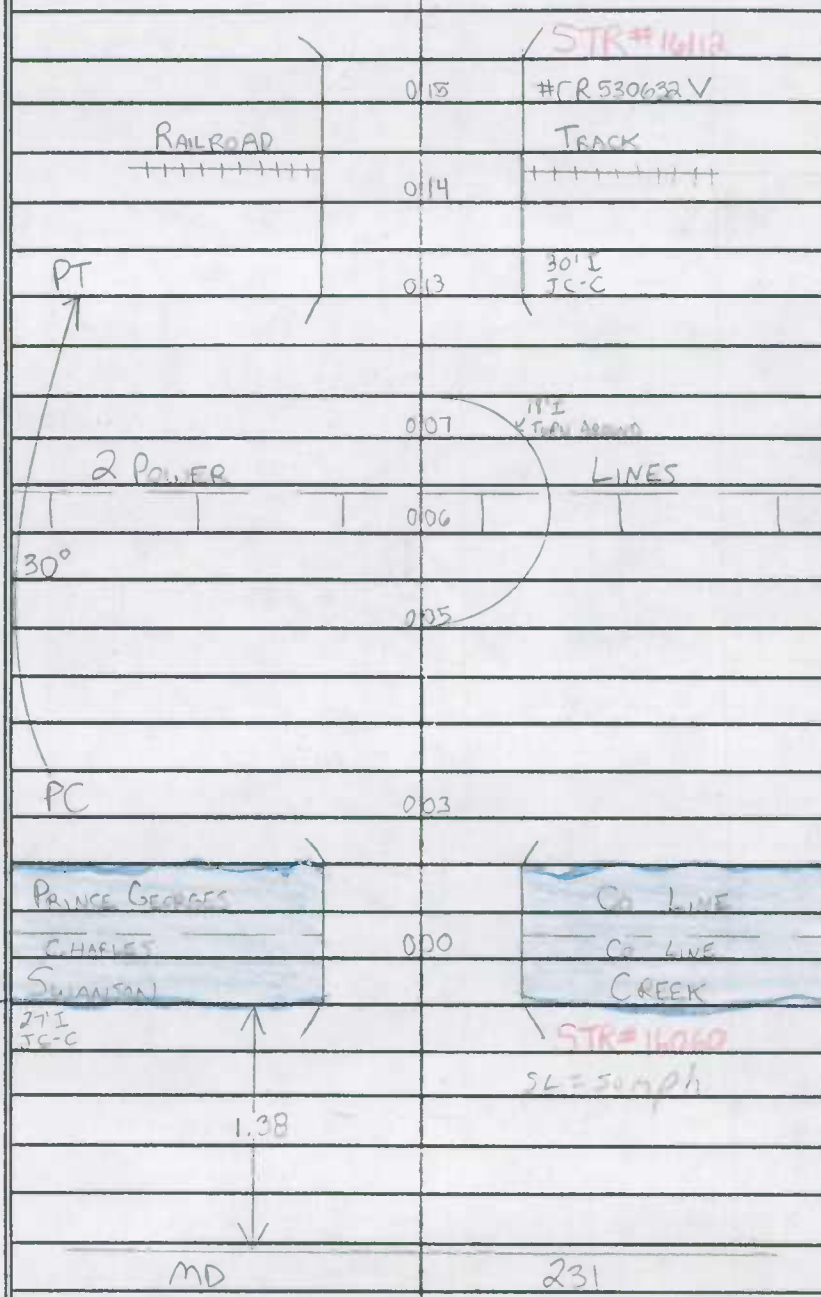 STR#16112
0.15 #CR530632V
RAILROAD TRACK
0.14
PT
0.13
30'I
JC-C
0.07
18'I
TURN AROUND
2 POWER LINES
0.06
30°
0.05
PC
0.03
PRINCE GEORGES CO LINE
CHARLES 0.00 CO LINE
SWANSON CREEK
27'I
JC-C
STR#16060
SL=50mph
1.38
MD 231